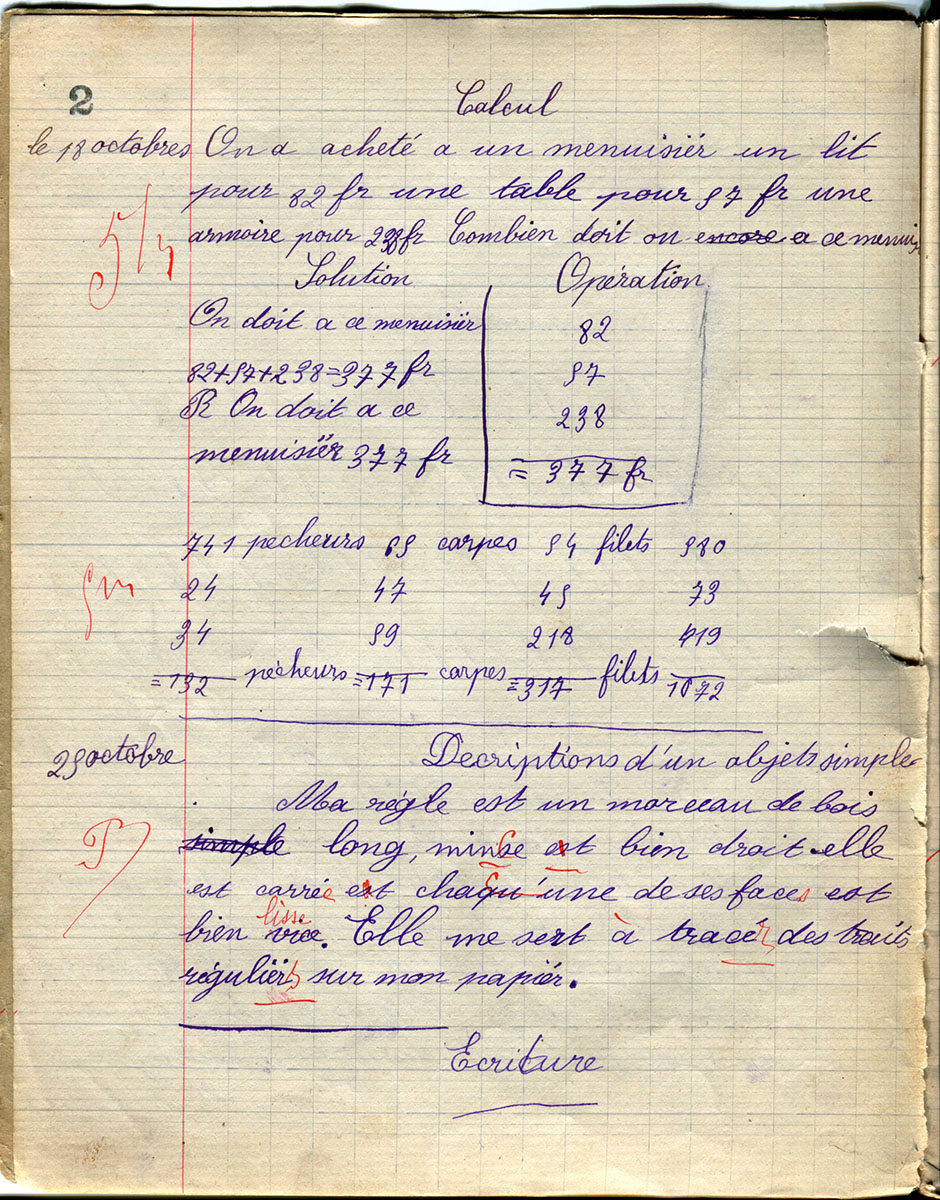 2
Calcul
le 18 octobres On a acheté a un menuisiér un lit
pour 82 fr une table pour 57 fr une
armoire pour 238 fr Combien doit on encore a ce menuis
Solution Opération
On doit a ce menuisiër 82
82+57+238=377 fr 57
R On doit a ce 238
menuisiër 377 fr = 377 fr
741 pecheurs 65 carpes 54 filets 580
24 47 45 73
34 59 218 419
=132 pécheurs =171 carpes =317 filets 1072
25 octobre Decriptions d'un objets simple
Ma régle est un morceau de bois
simple long, mince et bien droit. elle
est carrée et chaqu'une de ses faces est
lisse
bien vice. Elle me sert à tracer des traits
réguliërs sur mon papiér.
Ecriture